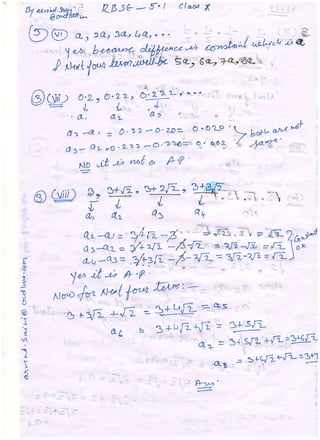 By arvind Saini RBSE - 5.1 Class X
⑤ (vi) a, 2a, 3a, 4a, ...
Yes, because difference is constant which is a
& Next four term will be 5a, 6a, 7a, 8a
③ (vii) 0.2, 0.22, 0.222, ...
a₁ a₂ a₃
a₂-a₁ = 0.22-0.20= 0.020
a₃-a₂ = 0.222-0.220= 0.002
both are not same.
NO it is not a A.P.
③ (viii) 3, 3+√2, 3+2√2, 3+3√2
a₁ a₂ a₃ a₄
a₂-a₁ = 3+√2-3 = √2
a₃-a₂ = 3+2√2-3-√2 = 2√2-√2 = √2
a₄-a₃ = 3+3√2-3-2√2 = 3√2-2√2 = √2
Constant
Yes it is A.P.
Now for Next four term: -
3+3√2+√2 = 3+4√2 = a₅
a₆ = 3+4√2+√2 = 3+5√2
a₇ = 3+5√2+√2=3+6√2
a₈ = 3+6√2+√2=3+7
Ans.